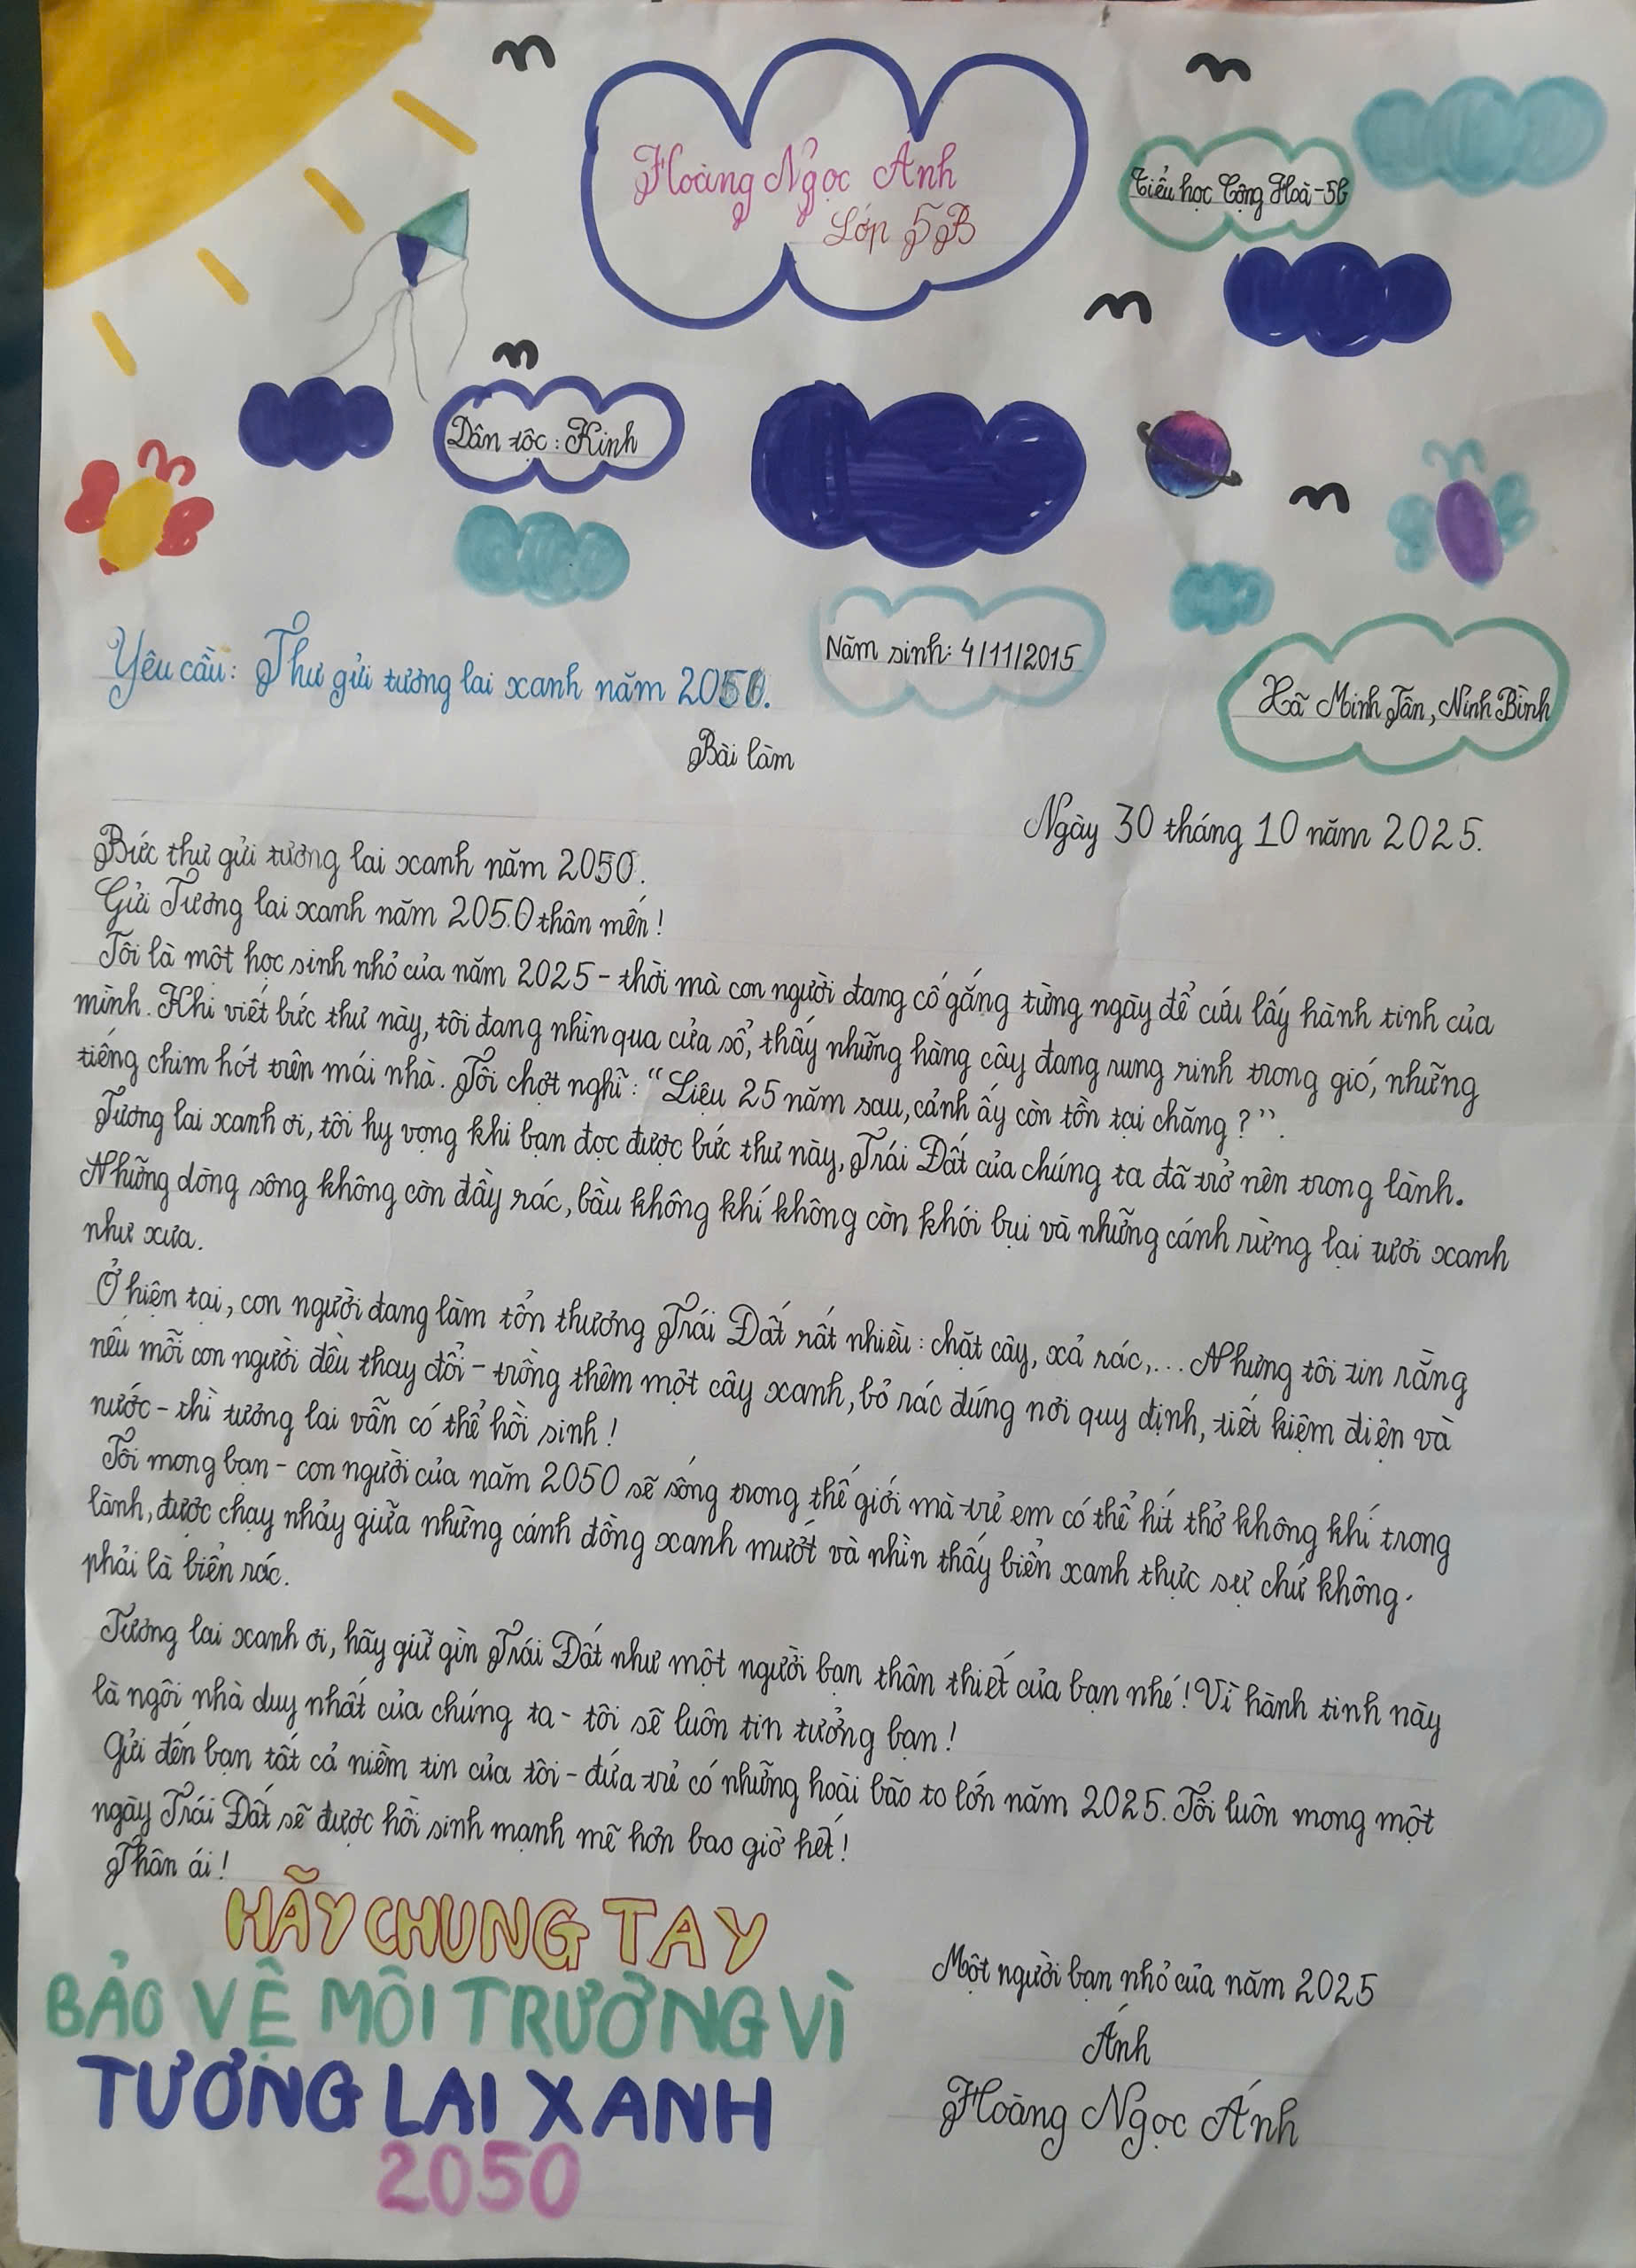 Hoàng Ngọc Ánh
Lớp 5B
Tiểu học Cộng Hoà-5b
Dân tộc: Kinh
Năm sinh: 4/11/2015
Yêu cầu: Thư gửi tương lai xanh năm 2050.
Xã Minh Tân, Ninh Bình
Bài làm
Ngày 30 tháng 10 năm 2025.
Bức thư gửi tương lai xanh năm 2050.
Gửi Tương lai xanh năm 2050 thân mến!
Tôi là một học sinh nhỏ của năm 2025 - thời mà con người đang cố gắng từng ngày để cứu lấy hành tinh của
mình. Khi viết bức thư này, tôi đang nhìn qua cửa sổ, thấy những hàng cây đang rung rinh trong gió, những
tiếng chim hót trên mái nhà. Tôi chợt nghĩ: "Liệu 25 năm sau, cảnh ấy còn tồn tại chăng?".
Tương lai xanh ơi, tôi hy vọng khi bạn đọc được bức thư này, Trái Đất của chúng ta đã trở nên trong lành.
Những dòng sông không còn đầy rác, bầu không khí không còn khói bụi và những cánh rừng lại tươi xanh
như xưa.
Ở hiện tại, con người đang làm tổn thương Trái Đất rất nhiều: chặt cây, xả rác,... Nhưng tôi tin rằng
nếu mỗi con người đều thay đổi - trồng thêm một cây xanh, bỏ rác đúng nơi quy định, tiết kiệm điện và
nước - thì tương lai vẫn có thể hồi sinh!
Tôi mong bạn - con người của năm 2050 sẽ sống trong thế giới mà trẻ em có thể hít thở không khí trong
lành, được chạy nhảy giữa những cánh đồng xanh mướt và nhìn thấy biển xanh thực sự chứ không
phải là biển rác.
Tương lai xanh ơi, hãy giữ gìn Trái Đất như một người bạn thân thiết của bạn nhé! Vì hành tinh này
là ngôi nhà duy nhất của chúng ta - tôi sẽ luôn tin tưởng bạn!
Gửi đến bạn tất cả niềm tin của tôi - đứa trẻ có những hoài bão to lớn năm 2025. Tôi luôn mong một
ngày Trái Đất sẽ được hồi sinh mạnh mẽ hơn bao giờ hết!
Thân ái!
HÃY CHUNG TAY
BẢO VỆ MÔI TRƯỜNG VÌ
TƯƠNG LAI XANH
2050
Một người bạn nhỏ của năm 2025
Ánh
Hoàng Ngọc Ánh